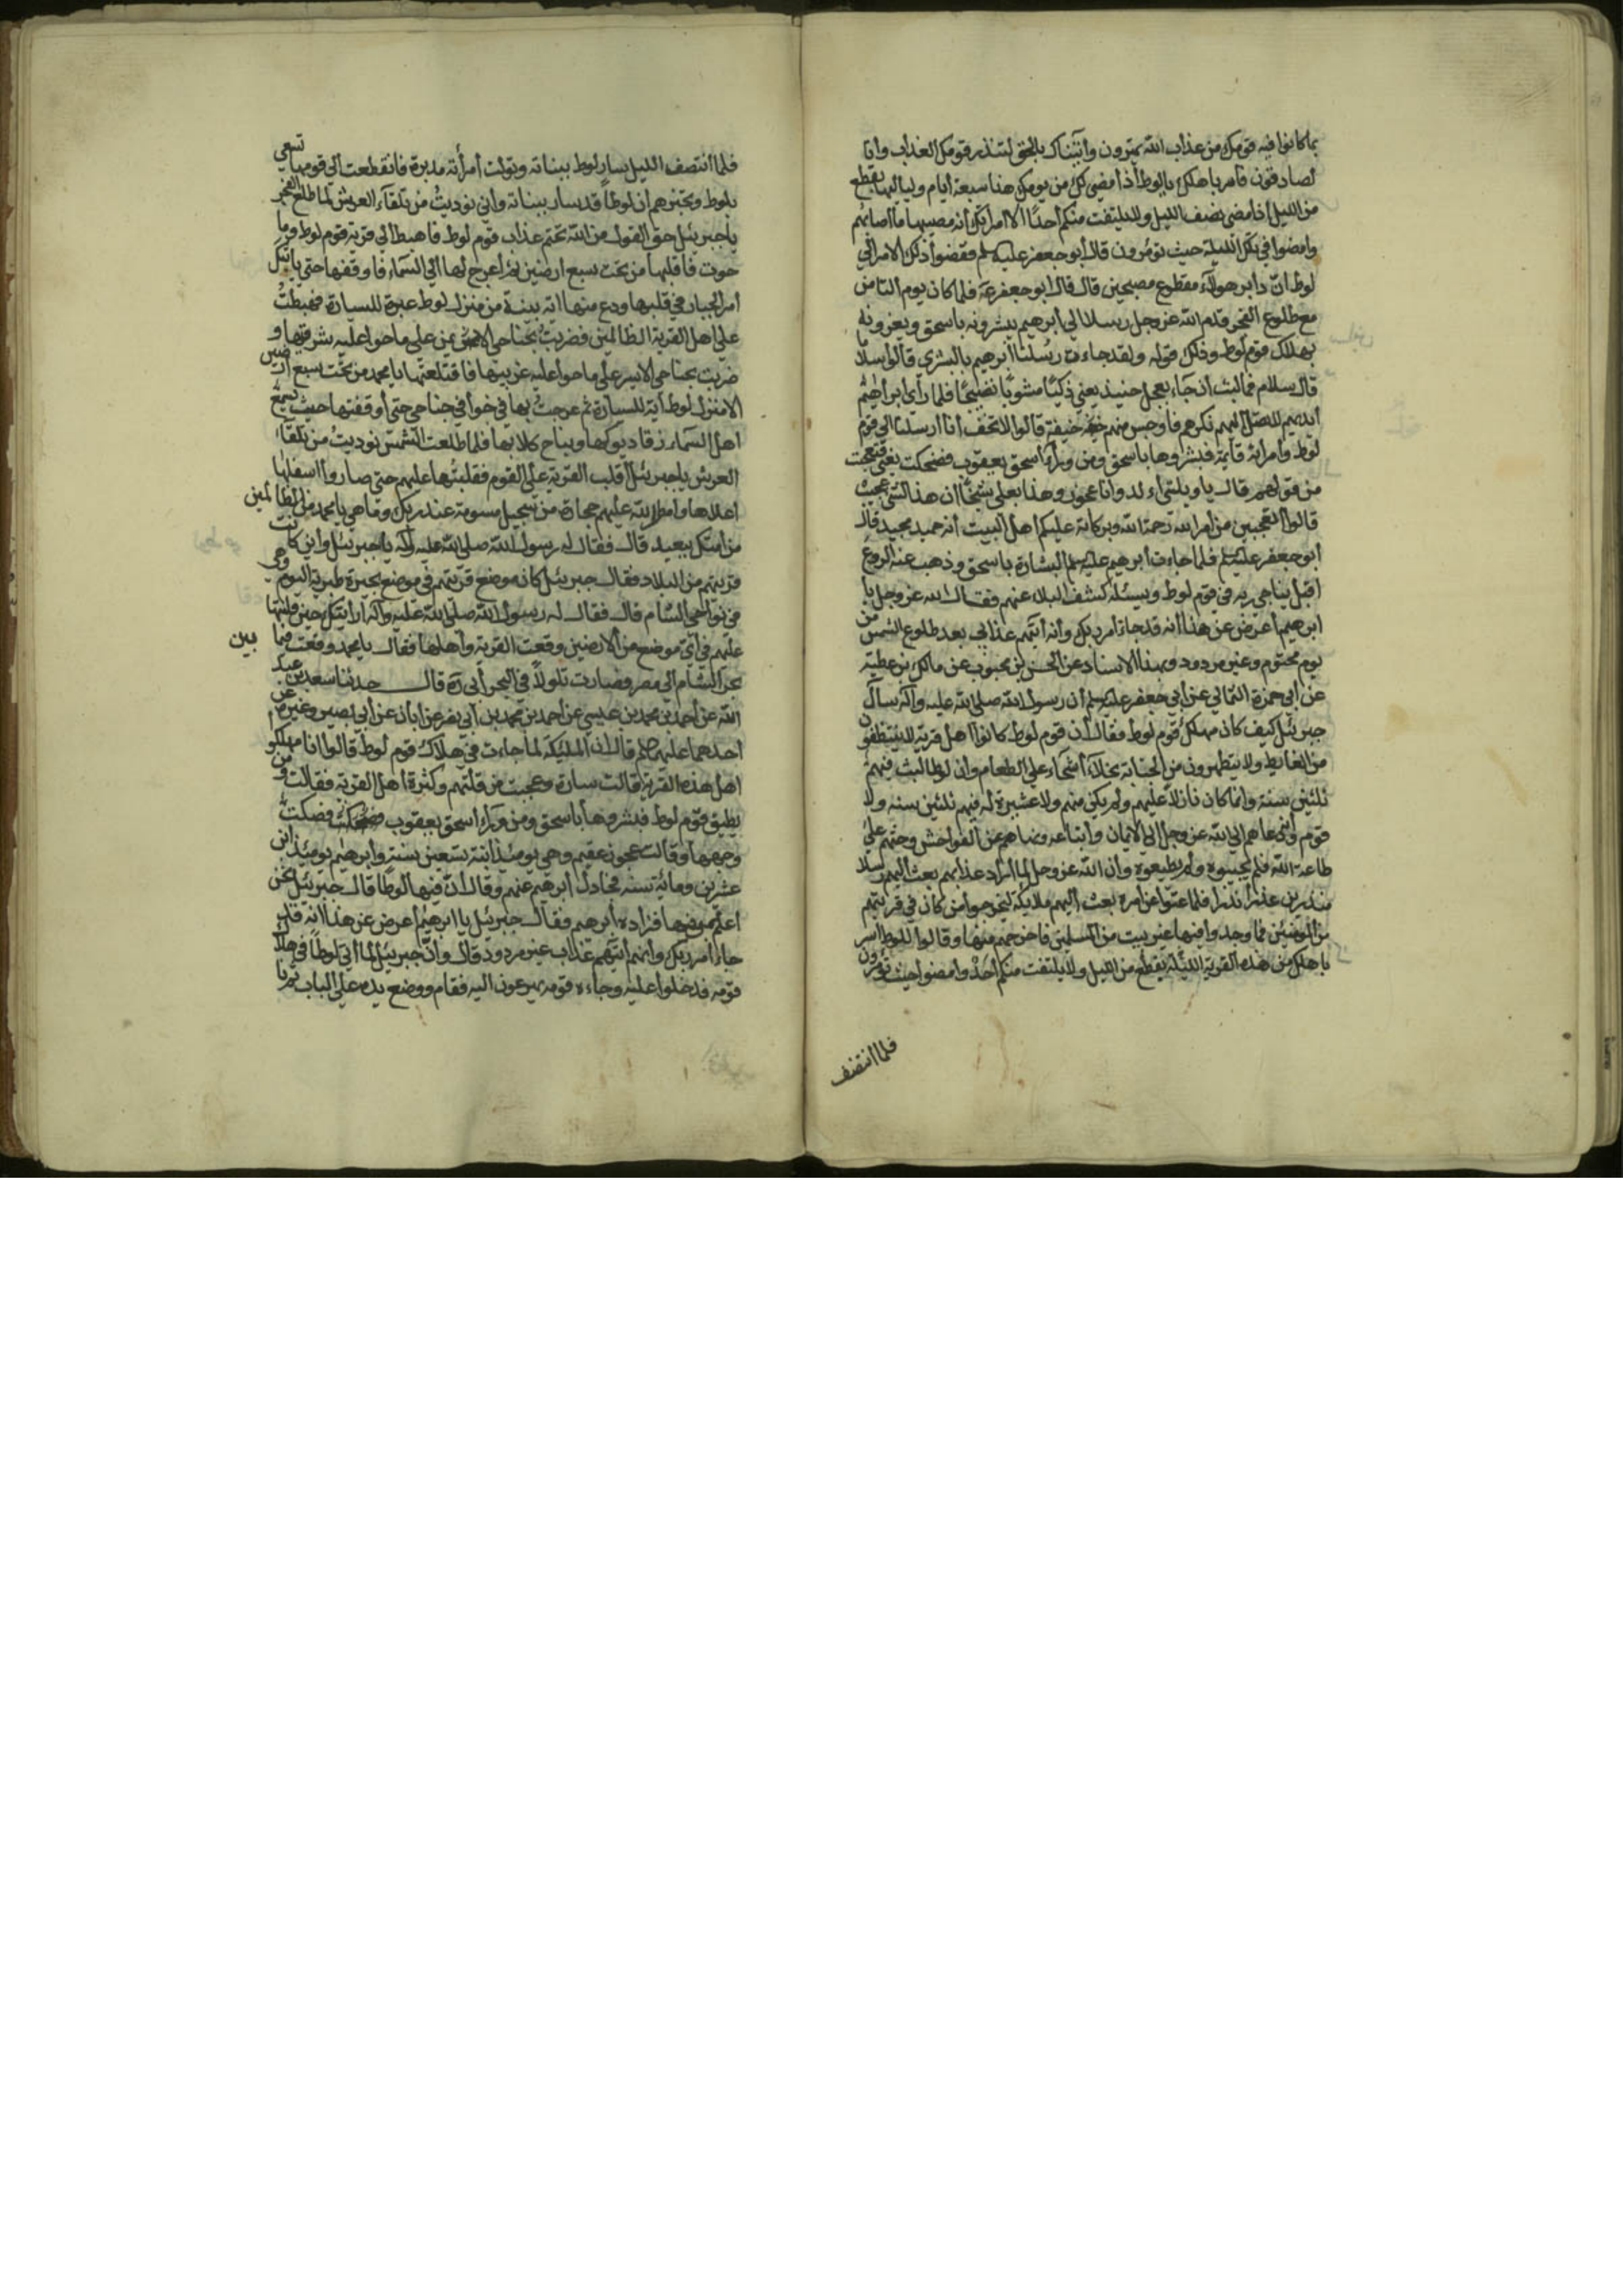 بما كانوا فيه قومك من عذاب الله يمترون وأتيناك بالحق لتنذر قومك العذاب وانا
لصادقون فاسر باهلك يا لوط اذا مضى لك من يومك هذا سبعة ايام ولياليها بقطع
من الليل اذا مضى نصف الليل ولا يلتفت منكم أحدا الا امراتك انه مصيبها ما اصابهم
وامضوا في تلك الليلة حيث تؤمرون قال ابو جعفر عليه سلم فقضوا ذلك الامر الى
لوط ان دابر هؤلاء مقطوع مصبحين قال قال ابو جعفر عه فلما كان يوم الثامن
مع طلوع الفجر قدم الله عز وجل رسلا الى ابرهيم يبشرونه باسحق ويعزونه
بهلاك قوم لوط وذلك قوله ولقد جاءت رسلنا ابرهيم بالبشرى قالوا سلاما
قال سلام فما لبث ان جاء بعجل حنيذ يعني ذكيا مشويا نضيجا فلما رأى ابراهيم
ايديهم لا تصل اليهم نكرهم فاوجس منهم خيفة قالوا لا تخف انا ارسلنا الى قوم
لوط وامرأته قائمة فبشروها باسحق ومن وراء اسحق بعقوب فضحكت يعني فتعجبت
من قولهم قالت يا ويلتىء لد وانا عجوز وهذا بعلي شيخا ان هذا لشئ عجيب
قالوا اتعجبين من امر الله رحمة الله وبركاته عليكم اهل البيت انه حميد مجيد قال
ابو جعفر عليه سلم فلما جاءت ابرهيم عليه سلم البشارة باسحق وذهب عنه الروع
اقبل يناجي ربه في قوم لوط ويسئله كشف البلاء عنهم فقال الله عز وجل يا
ابرهيم اعرض عن هذا انه قد جاء امر ربك وانه آتيهم عذابي بعد طلوع الشمس من
يوم محتوم وغير مردود وبهذا الاسناد عن الحسن بن محبوب عن مالك بن عطية
عن ابي حمزة الثمالي عن ابي جعفر عليه سلم ان رسول الله صلى الله عليه وآله سأل
جبرئيل كيف كان مهلك قوم لوط فقال ان قوم لوط كانوا اهل قرية لا يتنظفون
من الغايط ولا يتطهرون من الجنابة بخلاء اشحاء على الطعام وان لوطا لبث فيهم
ثلثين سنة وانما كان نازلا عليهم ولم يكن منهم ولا عشيرة له فيهم ثلثين سنه ولا
قوم وانه دعاهم الى الله عز وجل الى الايمان واتباعه ونهاهم عن الفواحش وحثهم على
طاعة الله فلم يجيبوه ولم يطيعوه وان الله عز وجل لما اراد عذابهم بعث اليهم رسلا
منذرين عذرا نذرا فلما عتوا عن امره بعث اليهم ملائكة ليخرجوا من كان في قريتهم
من المؤمنين فما وجدوا فيها غير بيت من المسلمين فاخرجهم منها وقالوا للوط اسر
باهلك من هذه القرية الليلة بقطع من الليل ولا يلتفت منكم أحد وامضوا حيث تؤمرون
فلما انتصف
فلما انتصف الليل سار لوط ببناته وتولت امرأته مدبرة فانقطعت الى قومها تسعى
بلوط وتخبرهم ان لوطا قد سار ببناته واني نوديت من تلقاء العرش لما طلع الفجر
يا جبرئيل حق القول من الله بحتم عذاب قوم لوط فاهبط الى قرية قوم لوط وما
حوت فاقلبها من تحت سبع ارضين ثم اعرج بها الى السماء فاوقفها حتى يأتيك
امر الجبار في قلبها ودع منها آية بينة من منزل لوط عبرة للسيارة فهبطت
على اهل القرية الظالمين فضربت بجناحي الايمن على ما حوا عليه شرقيها و
ضربت بجناحي الايسر على ما حوا عليه غربيها فاقتلعتها يا محمد من تحت سبع ارضين
الا منزل لوط آية للسيارة ثم عرجت بها في خوافي جناحي حتى اوقفتها حيث يسمع
اهل السماء زقاء ديوكها ونباح كلابها فلما طلعت الشمس نوديت من تلقاء
العرش يا جبرئيل اقلب القرية على القوم فقلبتها عليهم حتى صار وا اسفلها
اعلاها وامطر الله عليهم حجارة من سجيل مسومة عند ربك وما هي يا محمد من الظالمين
من امتك ببعيد قال فقال له رسول الله صلى الله عليه وآله يا جبرئيل واين كانت
قريتهم من البلاد فقال جبرئيل كان موضع قريتهم في موضع بحيرة طبرية اليوم وهي
في نواحي الشام قال فقال له رسول الله صلى الله عليه وآله ارايتك حين قلبتها
عليهم في اي موضع من الارضين وقعت القرية واهلها فقال يا محمد وقعت فيما بين
بحر الشام الى مصر فصارت تلولا في البحر ابي ره قال حدثنا سعد بن عبد
الله عن احمد بن محمد بن عيسى عن احمد بن محمد بن ابي نصر عن ابان عن ابي بصير وغيره عن
احدهما عليهما سلم قال ان الملئكة لما جاءت في هلاك قوم لوط قالوا انا مهلكوا
اهل هذه القرية قالت سارة وعجبت من قلتهم وكثرة اهل القرية فقالت ومن
يطيق قوم لوط فبشروها باسحق ومن وراء اسحق بعقوب فصكت
وجهها وقالت عجوز عقيم وهي يومئذ ابنة تسعين سنة وابرهيم يومئذ ابن
عشرين ومائة سنه فجادل ابرهيم عنهم وقال ان فيها لوطا قال جبرئيل نحن
اعلم بمن فيها فزاده ابرهيم فقال جبرئيل يا ابرهيم اعرض عن هذا انه قد
جاء امر ربك وانهم آتيهم عذاب غير مردود قال وان جبرئيل لما اتى لوطا في هلاك
قومه فدخلوا عليه وجاءه قومه يهرعون اليه فقام ووضع يده على الباب ثم نا